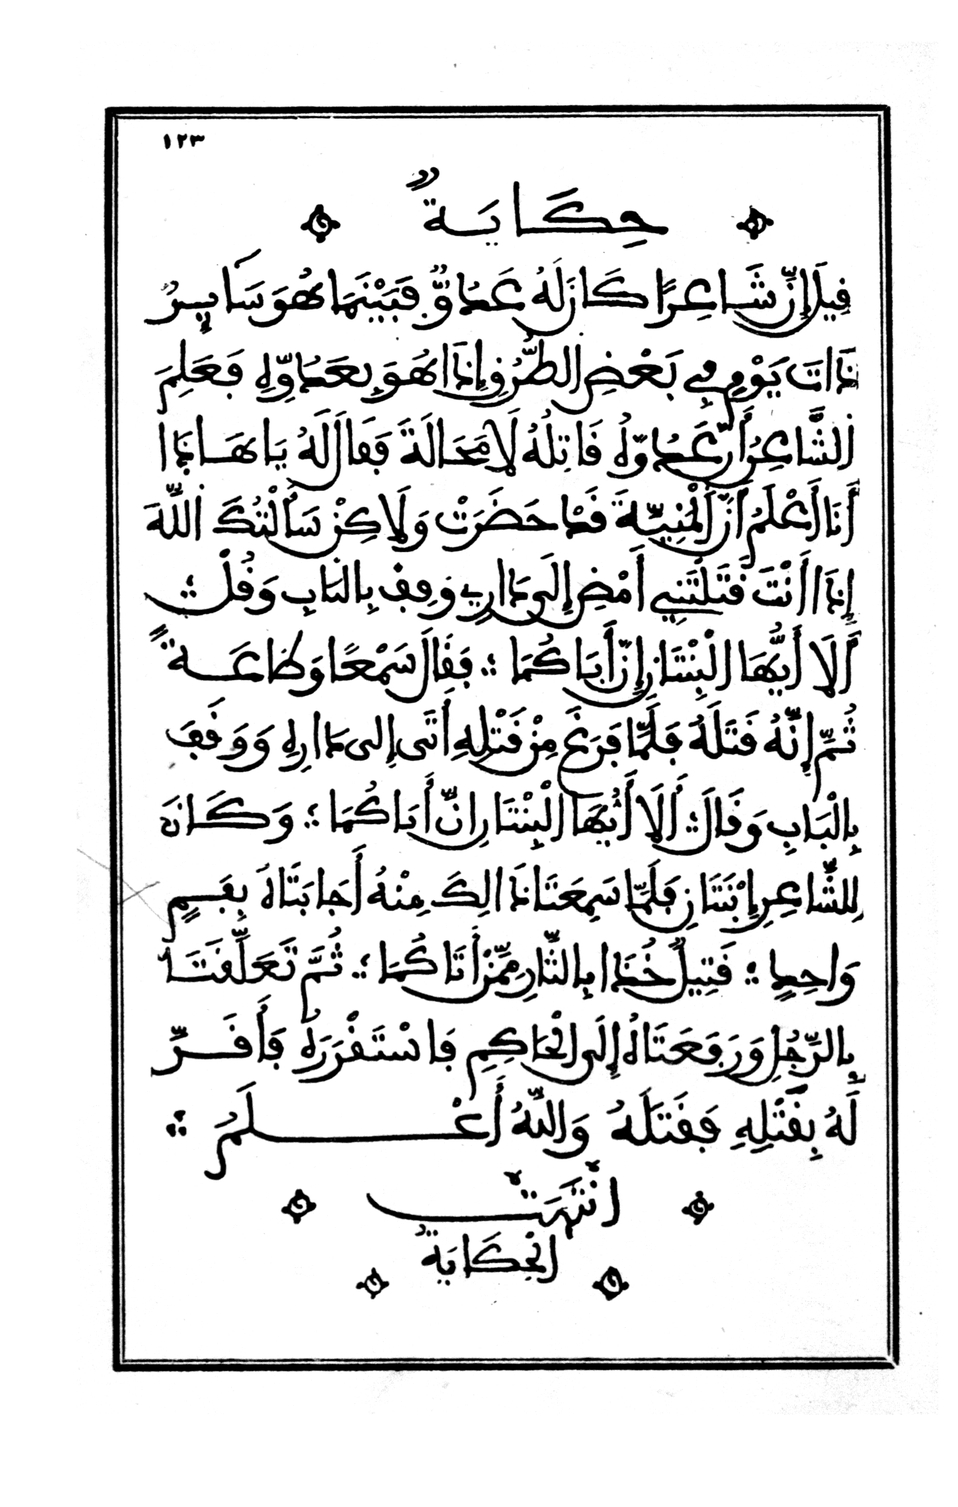 ١٢٣
حِكَايَةٌ
قِيلَ إِنَّ شَاعِرًا كَانَ لَهُ عَدُوٌّ فَبَيْنَمَا هُوَ سَايِرٌ
ذَاتَ يَوْمٍ فِي بَعْضِ الطُّرُقِ إِذَا هُوَ بِعَدُوِّهِ فَعَلِمَ
الشَّاعِرُ أَنَّ عَدُوَّهُ قَاتِلُهُ لَا مَحَالَةَ فَقَالَ لَهُ يَا هَاذَا
أَنَا أَعْلَمُ أَنَّ الْمَنِيَّةَ قَدْ حَضَرَتْ وَلَاكِنْ سَأَلْتُكَ اللَّهَ
إِذَا أَنْتَ قَتَلْتَنِي أَمْضِ إِلَى دَارِي وَقِفْ بِالْبَابِ وَقُلْ ؛
أَلَا أَيُّهَا الْبِنْتَانِ إِنَّ أَبَاكُمَا ؛ فَقَالَ سَمْعًا وَطَاعَةً
ثُمَّ إِنَّهُ قَتَلَهُ فَلَمَّا فَرَغَ مِنْ قَتْلِهِ أَتَى إِلَى دَارِهِ وَوَقَفَ
بِالْبَابِ وَقَالَ ؛ أَلَا أَيُّهَا الْبِنْتَانِ إِنَّ أَبَاكُمَا ؛ وَكَانَ
لِلشَّاعِرِ ابْنَتَانِ فَلَمَّا سَمِعَتَا ذَالِكَ مِنْهُ أَجَابَتَاهُ بِفَمٍ
وَاحِدٍ ؛ قَتِيلٌ خُذَا بِالثَّارِ مِمَّنْ أَتَاكُمَا ؛ ثُمَّ تَعَلَّقَتَا
بِالرَّجُلِ وَرَفَعَتَاهُ إِلَى الْحَاكِمِ فَاسْتَقْرَرَهُ فَأَقَرَّ
لَهُ بِقَتْلِهِ فَقَتَلَهُ وَاللَّهُ أَعْلَمُ ؛
انْتَهَتْ
الْحِكَايَةُ